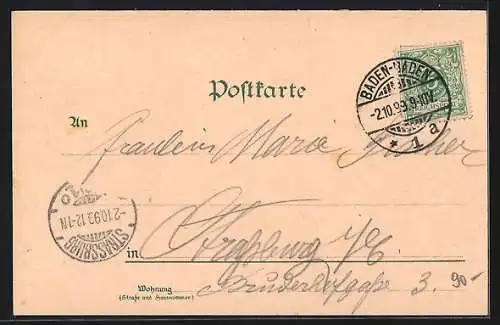 Postkarte
BADEN-BADEN
-2.10.99.9-10V.
* 1 a
An Fräulein Marie
STRASSBURG
-2.10.99.12-1N
in Straßburg i/E
Wohnung
(Straße und Hausnummer)
Bruderhofgasse 3.
90-